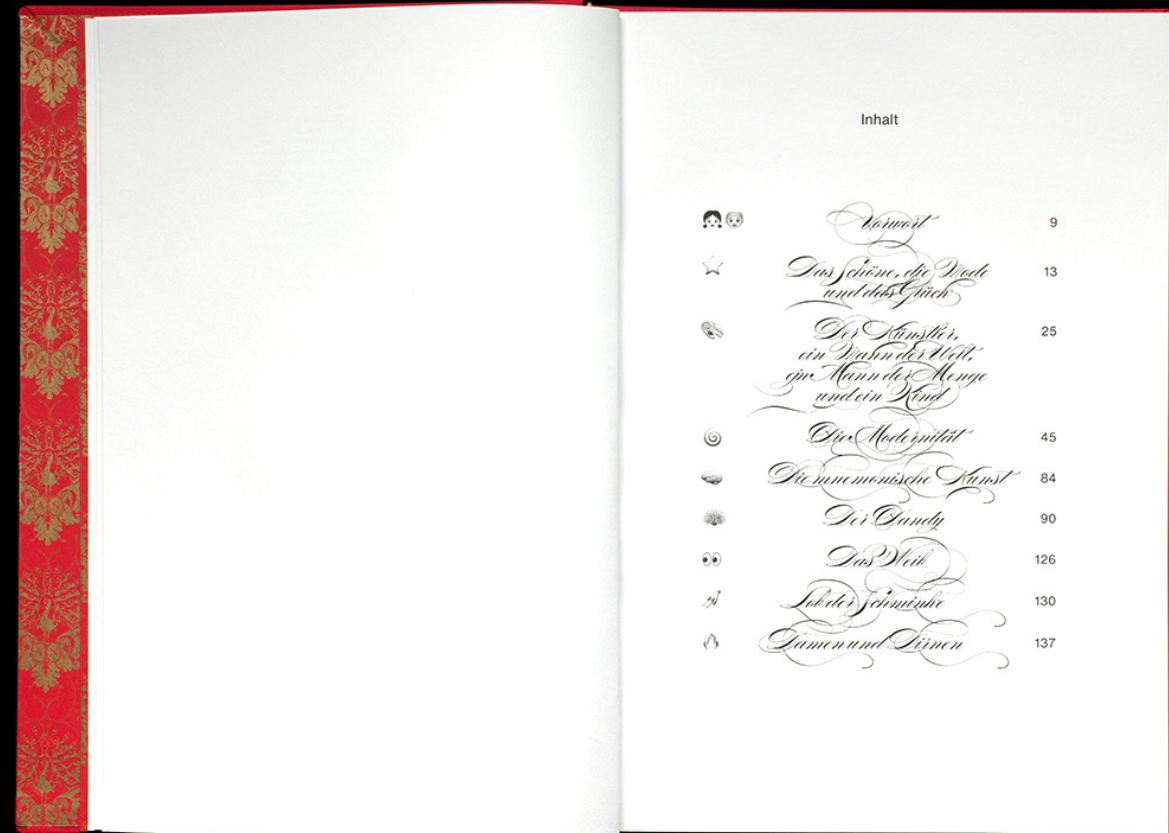 Inhalt
Vorwort 9
Das Schöne, die Mode 13
und das Glück
Der Künstler, 25
ein Mann der Welt,
ein Mann der Menge
und ein Kind
Die Modernität 45
Die mnemonische Kunst 84
Der Dandy 90
Das Weib 126
Lob der Schminke 130
Damen und Dirnen 137